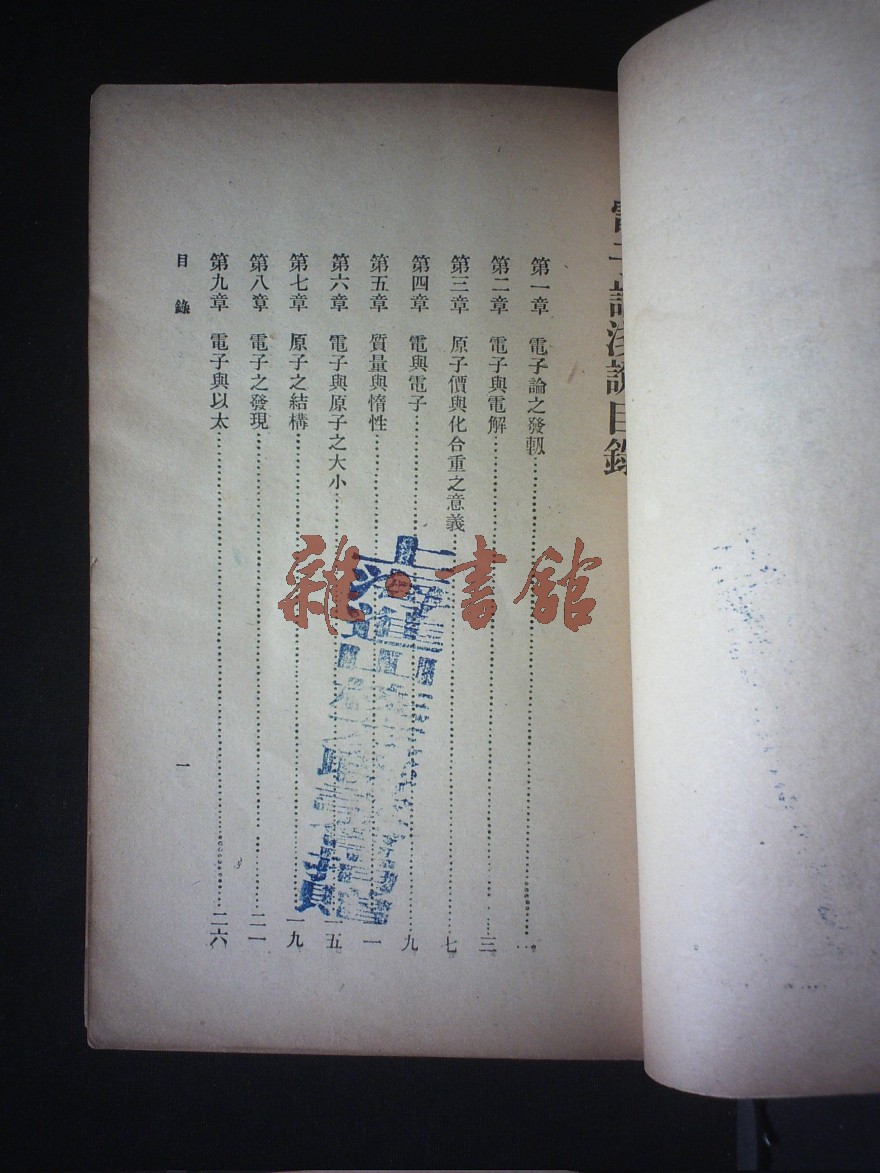 電子論淺說目錄
第一章 電子論之發軔 一
第二章 電子與電解 三
第三章 原子價與化合重之意義 七
第四章 電與電子 九
第五章 質量與惰性
第六章 電子與原子之大小 一五
第七章 原子之結構 一九
第八章 電子之發現 二一
第九章 電子與以太 二六
目錄
一
雜·書館